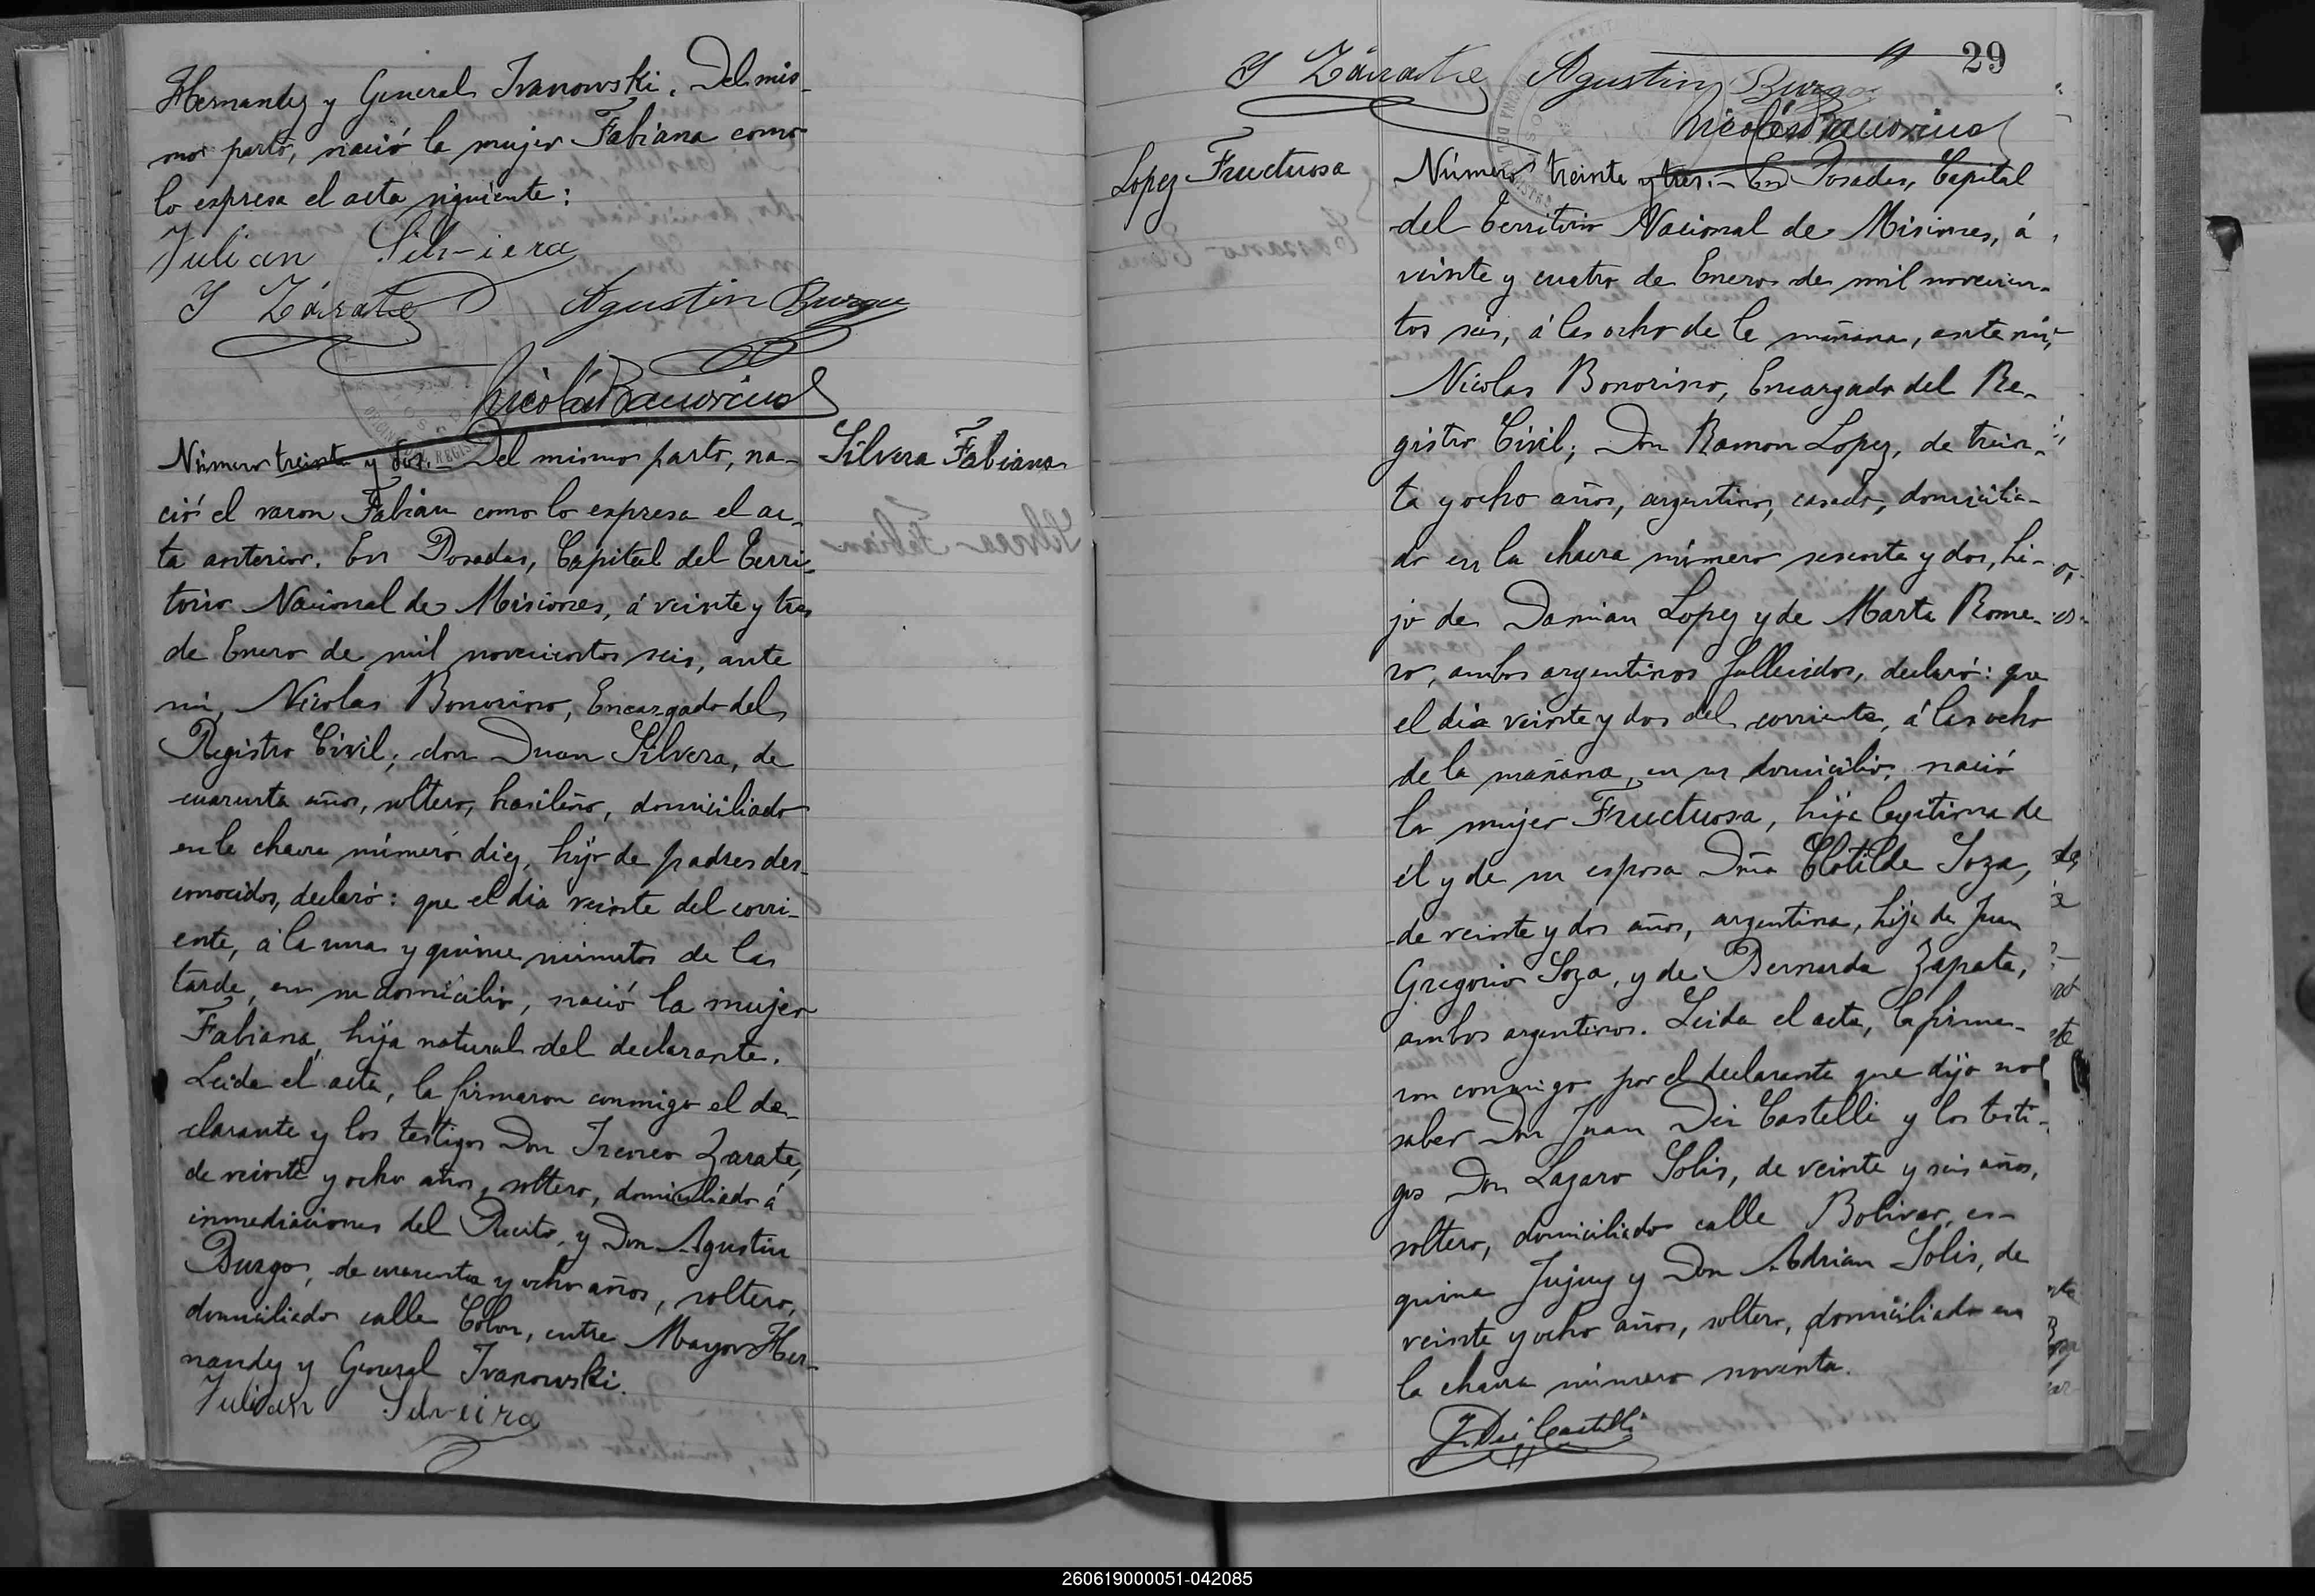 Hernandez y General Ivanowski. Del mis-
mo parto, nació la mujer Fabiana como
lo expresa el acta siguiente:
Julian Silviera
I Zárate Agustin Burgos
Nicolás Bonorino
Número treinta y dos.- Del mismo parto, na-
ció el varon Fabián como lo expresa el ac-
ta anterior. En Posadas, Capital del Terri-
torio Nacional de Misiones, á veinte y tres
de Enero de mil novecientos seis, ante
mi, Nicolas Bonorino, Encargado del
Registro Civil; don Juan Silvera, de
cuarenta años, soltero, brasileño, domiciliado
en la chacra número diez, hijo de padres des-
conocidos, declaró: que el dia veinte del corri-
ente, á la una y quince minutos de la
tarde, en su domicilio, nació la mujer
Fabiana, hija natural del declarante.
Leida el acta, la firmaron conmigo el de-
clarante y los testigos Don Ireneo Zarate,
de veinte y ocho años, soltero, domiciliado á
inmediaciones del Puerto, y Don Agustin
Burgos, de cuarenta y ocho años, soltero,
domiciliado calle Colon, entre Mayor Her-
nandez y General Ivanowski.
Julian Silveira
Silvera Fabiana
29
I Zárate Agustin Burgos
Nicolás Bonorino
Lopez Fructuosa
Número treinta y tres.- En Posadas, Capital
del Territorio Nacional de Misiones, á
veinte y cuatro de Enero de mil novecien-
tos seis, á las ocho de la mañana, ante mi,
Nicolas Bonorino, Encargado del Re-
gistro Civil; Don Ramon Lopez, de trein-
ta y ocho años, argentino, casado, domicilia-
do en la chacra número sesenta y dos, hi-
jo de Damian Lopez y de Marta Rome-
ro, ambos argentinos fallecidos, declaró: que
el día veinte y dos del corriente, á las ocho
de la mañana, en su domicilio, nació
la mujer Fructuosa, hija legitima de
él y de su esposa Dña Clotilde Soza,
de veinte y dos años, argentina, hija de Juan
Gregorio Soza, y de Bernarda Zapata,
ambos argentinos. Leida el acta, la firma-
ron conmigo por el declarante que dijo no
saber Don Juan Dei Castelli y los testi-
gos Don Lazaro Solis, de veinte y seis años,
soltero, domiciliado calle Bolivar, es-
quina Jujuy y Don Adrian Solis, de
veinte y ocho años, soltero, domiciliado en
la chacra número noventa.
J. Dei Castelli
260619000051-042085